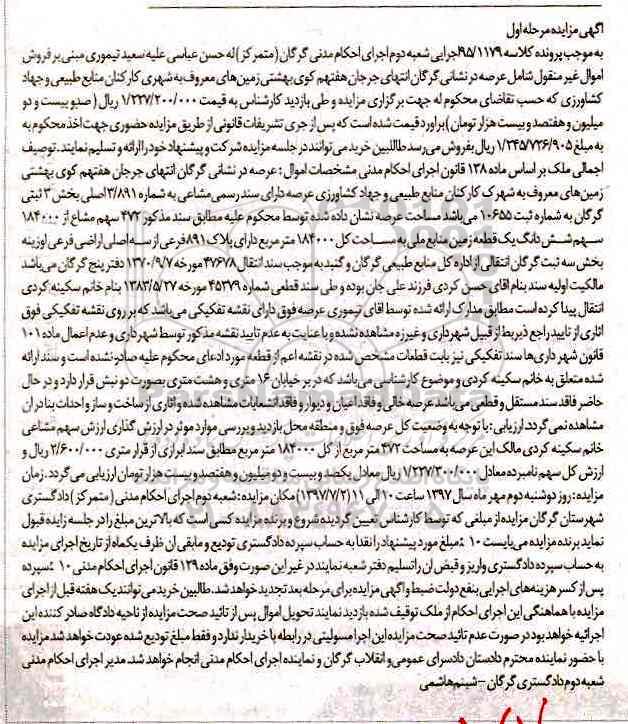 آگهی مزایده مرحله اول
به موجب پرونده کلاسه ۹۵/۱۱۷۹ اجرایی شعبه دوم اجرای احکام مدنی گرگان (متمرکز) له حسن عباسی علیه سعید تیموری مبنی بر فروش
اموال غیر منقول شامل عرصه در نشانی گرگان انتهای جرجان هفتهم کوی بهشتی زمین های معروف به شهری کارکنان منابع طبیعی و جهاد
کشاورزی که حسب تقاضای محکوم له جهت برگزاری مزایده و طی بازدید کارشناس به قیمت ۱/۲۲۷/۲۰۰/۰۰۰ ریال (صد و بیست و دو
میلیون و هفتصد و بیست هزار تومان) براورد قیمت شده است که پس از جری تشریفات قانونی از طریق مزایده حضوری جهت اخذ محکوم به
به مبلغ ۱/۲۴۵/۷۲۶/۹۰۵ ریال بفروش می رسد طالبین خرید می توانند در جلسه مزایده شرکت و پیشنهاد خود را ارائه و تسلیم نمایند. توصیف
اجمالی ملک بر اساس ماده ۱۳۸ قانون اجرای احکام مدنی مشخصات اموال: عرصه در نشانی گرگان انتهای جرجان هفتهم کوی بهشتی
زمین های معروف به شهرک کارکنان منابع طبیعی و جهاد کشاورزی عرصه دارای سند رسمی مشاعی به شماره ۳/۸۹۱ اصلی بخش ۳ ثبتی
گرگان به شماره ثبت ۱۰۶۵۵ می باشد مساحت عرصه نشان داده شده توسط محکوم علیه مطابق سند مذکور ۴۷۲ سهم مشاع از ۱۸۴۰۰۰
سهم شش دانگ یک قطعه زمین منابع ملی به مساحت کل ۱۸۴۰۰۰ متر مربع دارای پلاک ۸۹۱ فرعی از سه اصلی اراضی قرعی اوزینه
بخش سه ثبت گرگان انتقالی از اداره کل منابع طبیعی گرگان و گنبد به موجب سند انتقال ۴۷۶۷۸ مورخه ۱۳۷۰/۹/۷ دفتر پنج گرگان می باشد
مالکیت اولیه سند بنام اقای حسن کردی فرزند علی جان بوده و طی سند قطعی شماره ۴۵۳۷۹ مورخه ۱۳۸۳/۵/۲۷ بنام خانم سکینه کردی
انتقال پیدا کرده است مطابق مدارک ارائه شده توسط اقای تیموری عرصه فوق دارای نقشه تفکیکی می باشد که بر روی نقشه تفکیکی فوق
اثاری از تایید راجع ذیربط از قبیل شهرداری و غیرزه مشاهده نشده و با عنایت به عدم تایید نقشه مذکور توسط شهرداری و عدم اعمال ماده ۱۰۱
قانون شهرداری ها سند تفکیکی نیز بابت قطعات مشخص شده در نقشه اعم از قطعه مورد ادعای محکوم علیه صادر نشده است و سند ارائه
شده متعلق به خانم سکینه کردی و موضوع کارشناسی می باشد که در بر خیابان ۱۶ متری و هشت متری بصورت دو نبش قرار دارد و در حال
حاضر فاقد سند مستقل و قطعی می باشد عرصه خالی و فاقد اعیان و دیوار و فاقد انشعابات مشاهده شده و آثاری از ساخت و ساز و احداث بنا در ان
مشاهده نمی گردد. ارزیابی: با توجه به وضعیت کل عرصه فوق و منطقه محل بازدید و بررسی موارد موثر در ارزش گذاری ارزش سهم مشاعی
خانم سکینه کردی مالک این عرصه به مساحت ۴۷۲ متر مربع از کل ۱۸۴۰۰۰ متر مربع مطابق سند ابرازی از قرار متری ۲/۶۰۰/۰۰۰ ریال و
ارزش کل سهم نامبرده معادل ۱/۲۲۷/۲۰۰/۰۰۰ ریال معادل یکصد و بیست و دو میلیون و هفتصد و بیست هزار تومان ارزیابی می گردد. زمان
مزایده: روز دوشنبه دوم مهر ماه سال ۱۳۹۷ ساعت ۱۰ الی ۱۱ (۱۳۹۷/۷/۲) مکان مزایده: شعبه دوم اجرای احکام مدنی (متمرکز) دادگستری
شهرستان گرگان مزایده از مبلغی که توسط کارشناس تعیین گردیده شروع و برنده مزایده کسی است که بالاترین مبلغ را در جلسه زایده قبول
نماید برنده مزایده می بایست ۱۰٪ مبلغ مورد پیشنهاد را نقدا به حساب سپرده دادگستری تودیع و مابقی ان ظرف یکماه از تاریخ اجرای مزایده
به حساب سپرده دادگستری واریز و قبض ان را تسلیم دفتر شعبه نمایند در غیر این صورت وفق ماده ۱۲۹ قانون اجرای احکام مدنی ۱۰٪ سپرده
پس از کسر هزینه های اجرایی بنفع دولت ضبط و اگهی مزایده برای مرحله بعد تجدید خواهد شد. طالبین خرید می توانند یک هفته قبل از اجرای
مزایده با هماهنگی این اجرای احکام از ملک توقیف شده بازدید نمایند تحویل اموال پس از تائید صحت مزایده از ناحیه دادگاه صادر کننده این
اجرائیه خواهد بود در صورت عدم تائید صحت مزایده این اجرا مسولیتی در رابطه با خریدار ندارد و فقط مبلغ تودیع شده عودت خواهد شد مزایده
با حضور نماینده محترم دادستان دادسرای عمومی و انقلاب گرگان و نماینده اجرای احکام مدنی انجام خواهد شد. مدیر اجرای احکام مدنی
شعبه دوم دادگستری گرگان - شبنم هاشمی